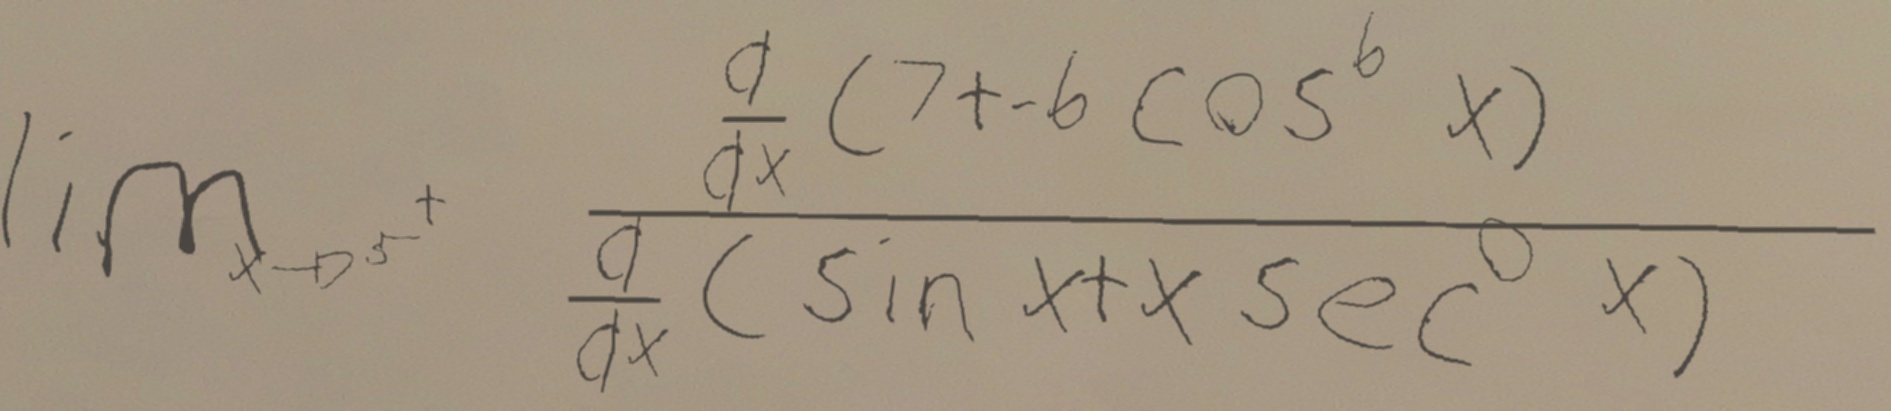 lim x→5⁺ \frac{\frac{d}{dx}(7+-6 cos^6 x)}{\frac{d}{dx}(sin x+x sec^0 x)}